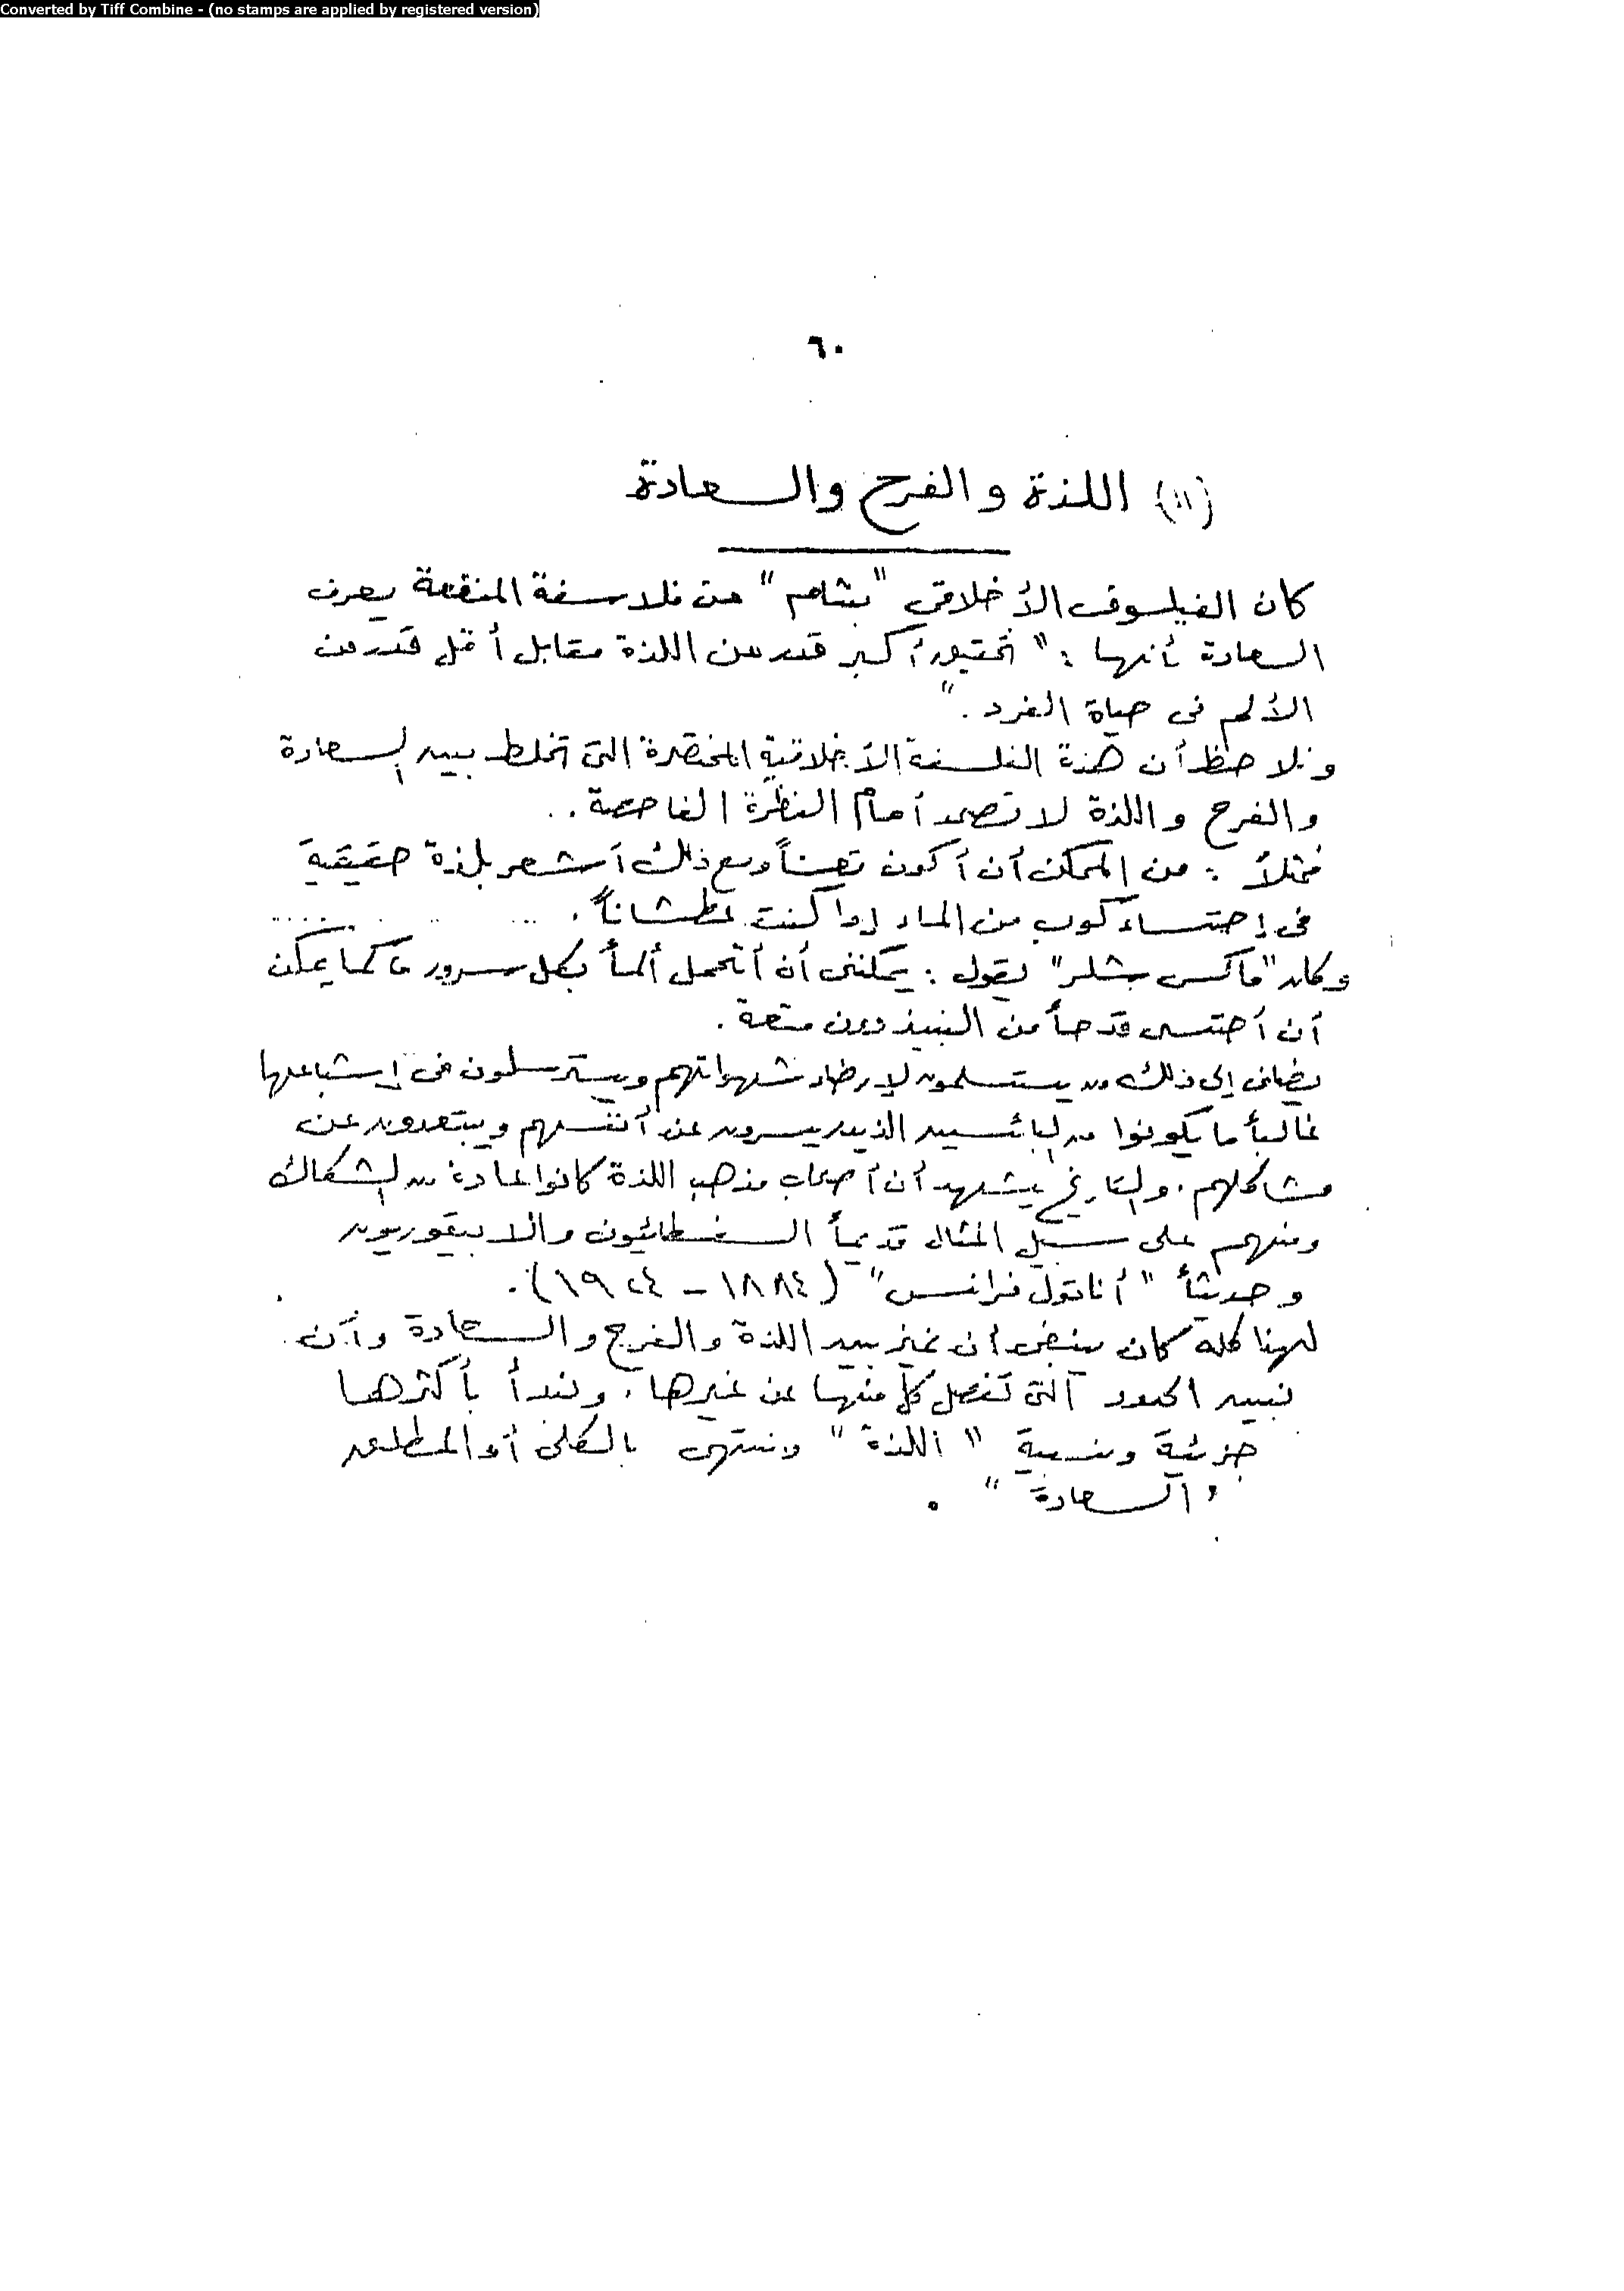 Converted by Tiff Combine - (no stamps are applied by registered version)
٦٠
(١١) اللذة والفرح والسعادة
كان الفيلسوف الأخلاقى "بنتام" من فلاسفة المنفعة يعرف
السعادة بأنها : " أكبر قدر من اللذة مقابل أقل قدر من
الألم فى حياة الفرد . "
ونلاحظ أن هذه الفلسفة الأخلاقية المختصرة التى تخلط بين السعادة
والفرح واللذة لا تصمد أمام النظرة الفاحصة . .
فمثلاً : من الممكن أن أكون تعساً ومع ذلك أشعر بلذة حقيقية
فى إحتساء كوب من الماء إذا كنت عطشاناً .
وكان "ماكس شلر" يقول : يمكننى أن أتحمل ألماً بكل سرور ، كما يمكن
أن أحتسى قدحاً من النبيذ دون متعة .
يضاف إلى ذلك من يستسلمون لإرضاء شهواتهم ويسترسلون فى إشباعها
غالباً ما يكونوا من البائسين الذين يسرون عن أنفسهم ويبتعدون عن
مشاكلهم . والتاريخ يشهد أن أصحاب مذهب اللذة كانوا عادة من الشكاك
ومنهم على سبيل المثال قديماً السفسطائيون والابيقوريون
وحديثاً " أناتول فرانس " (١٨٨٤ - ١٩٢٤) .
لهذا كله كان ينبغى أن نميز بين اللذة والفرح والسعادة وأن
نبين الحدود التى تفصل كل منها عن غيرها . ونبدأ بأكثرها
جزئية ونسبية " اللذة " وننتهى بالكلى أو المطلق
" السعادة " .